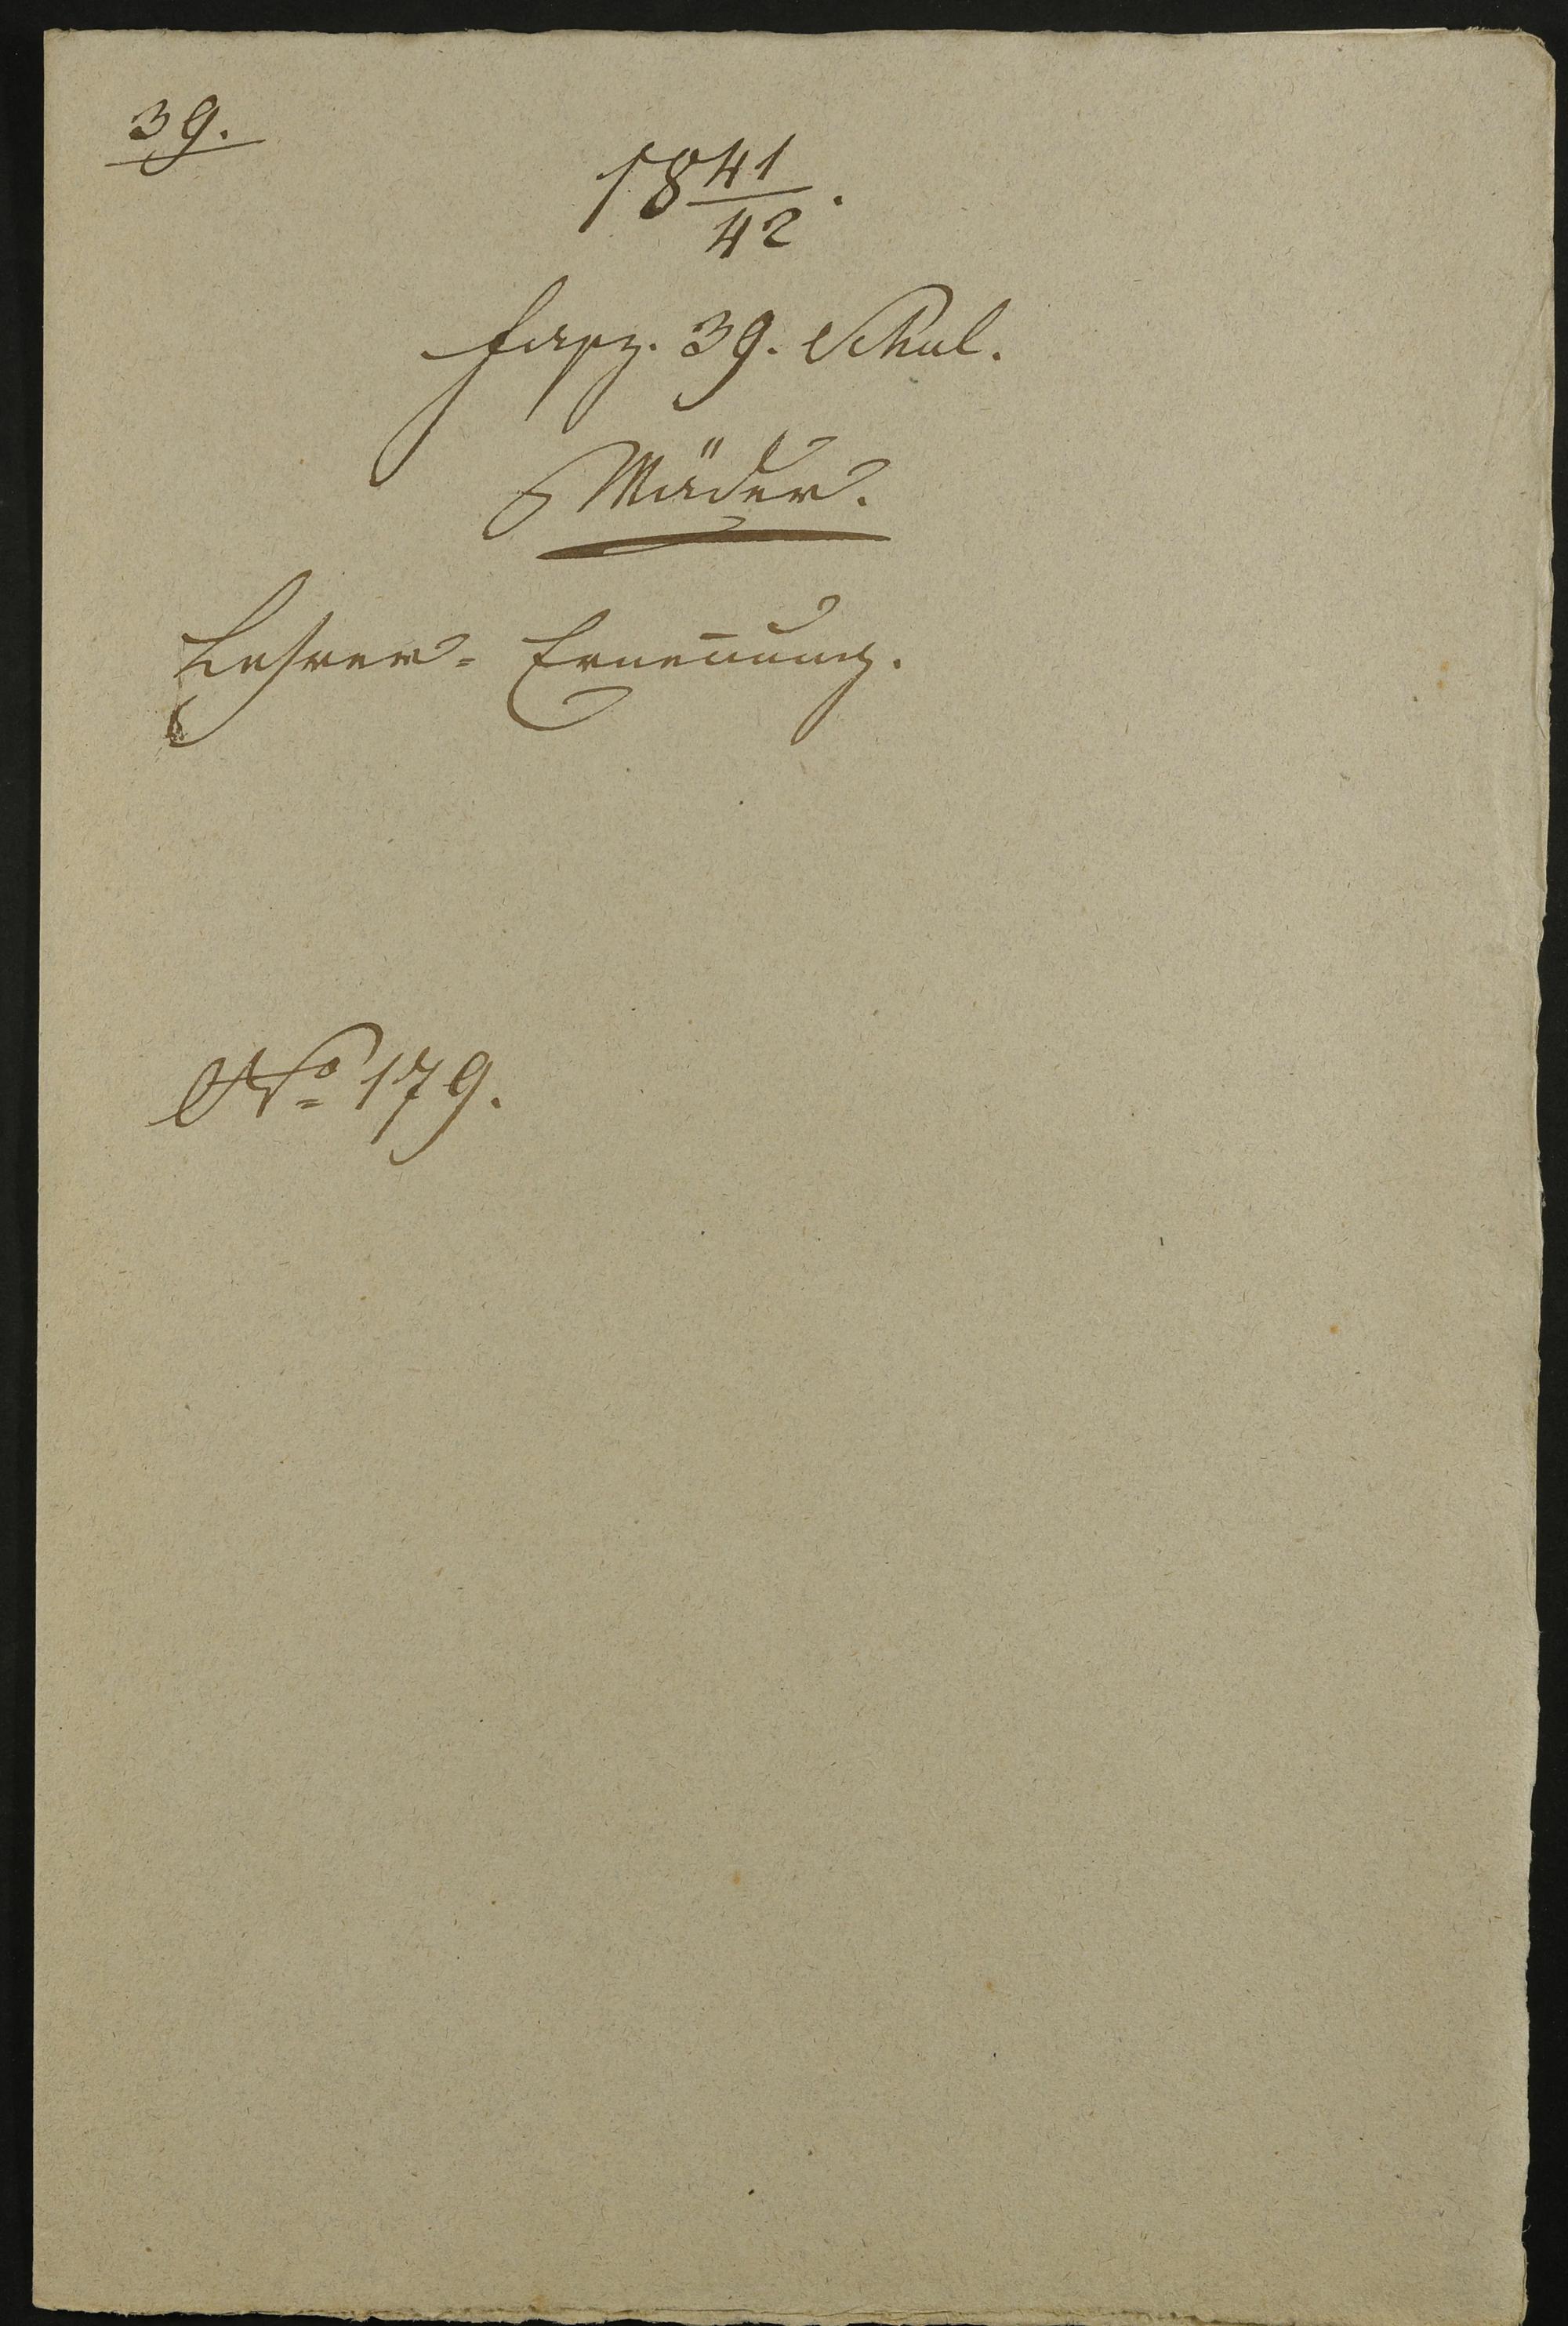 39.
18 41/42.
Fasz. 39. Schul.
Mäder.
Lehrer-Ernen̄ung.
No 179.